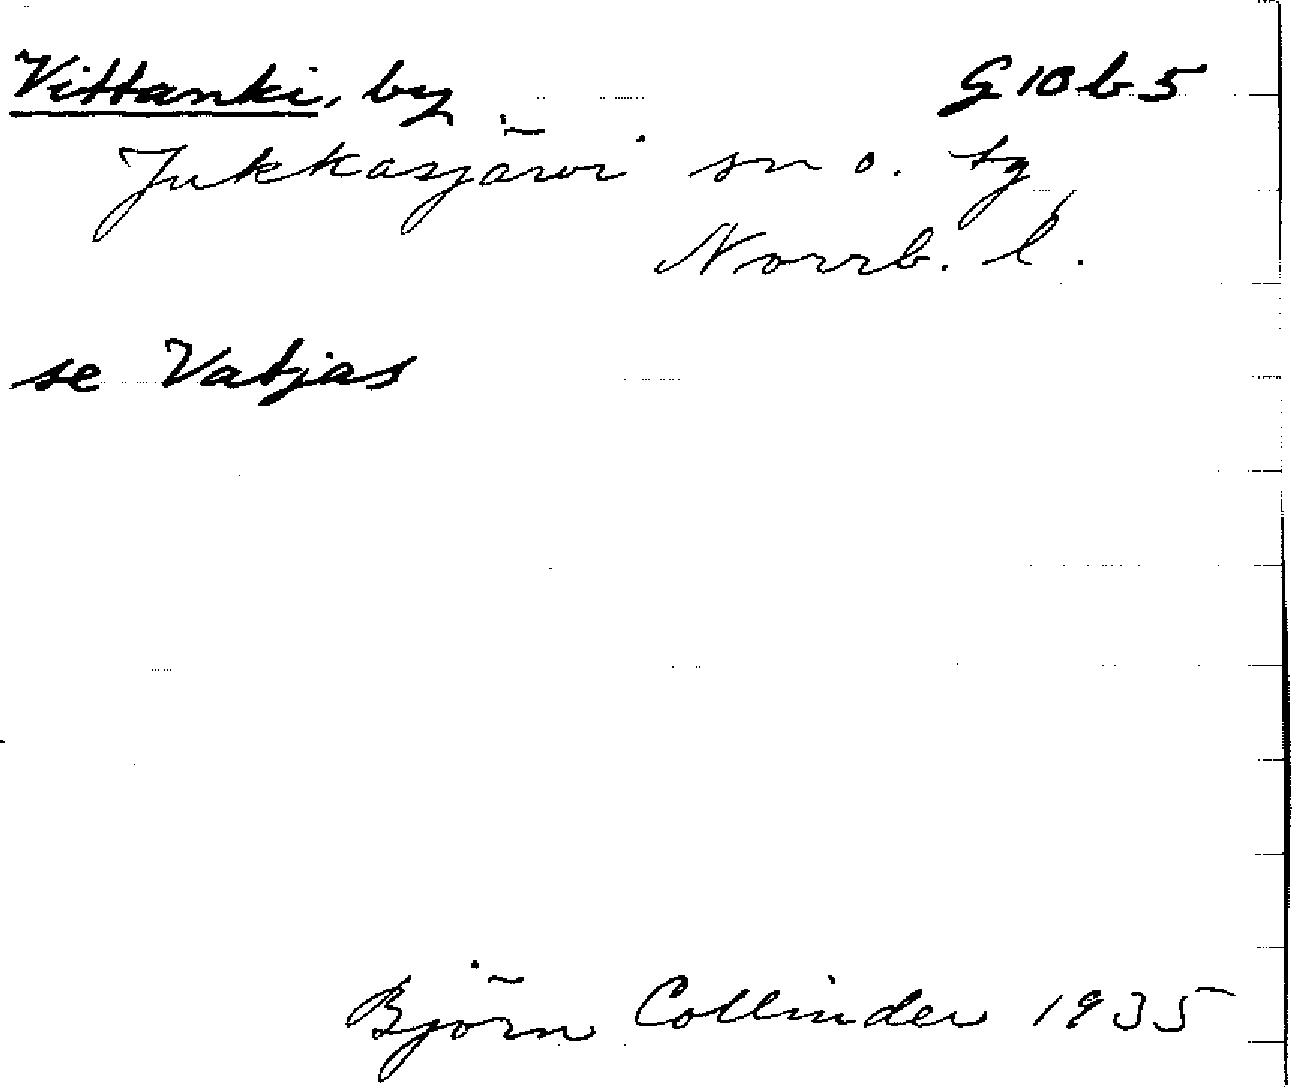 Vittanki, by G 10 b 5
Jukkasjärvi sn o. tg
Norrb. l.
se Vatjas
Björn Collinder 1935